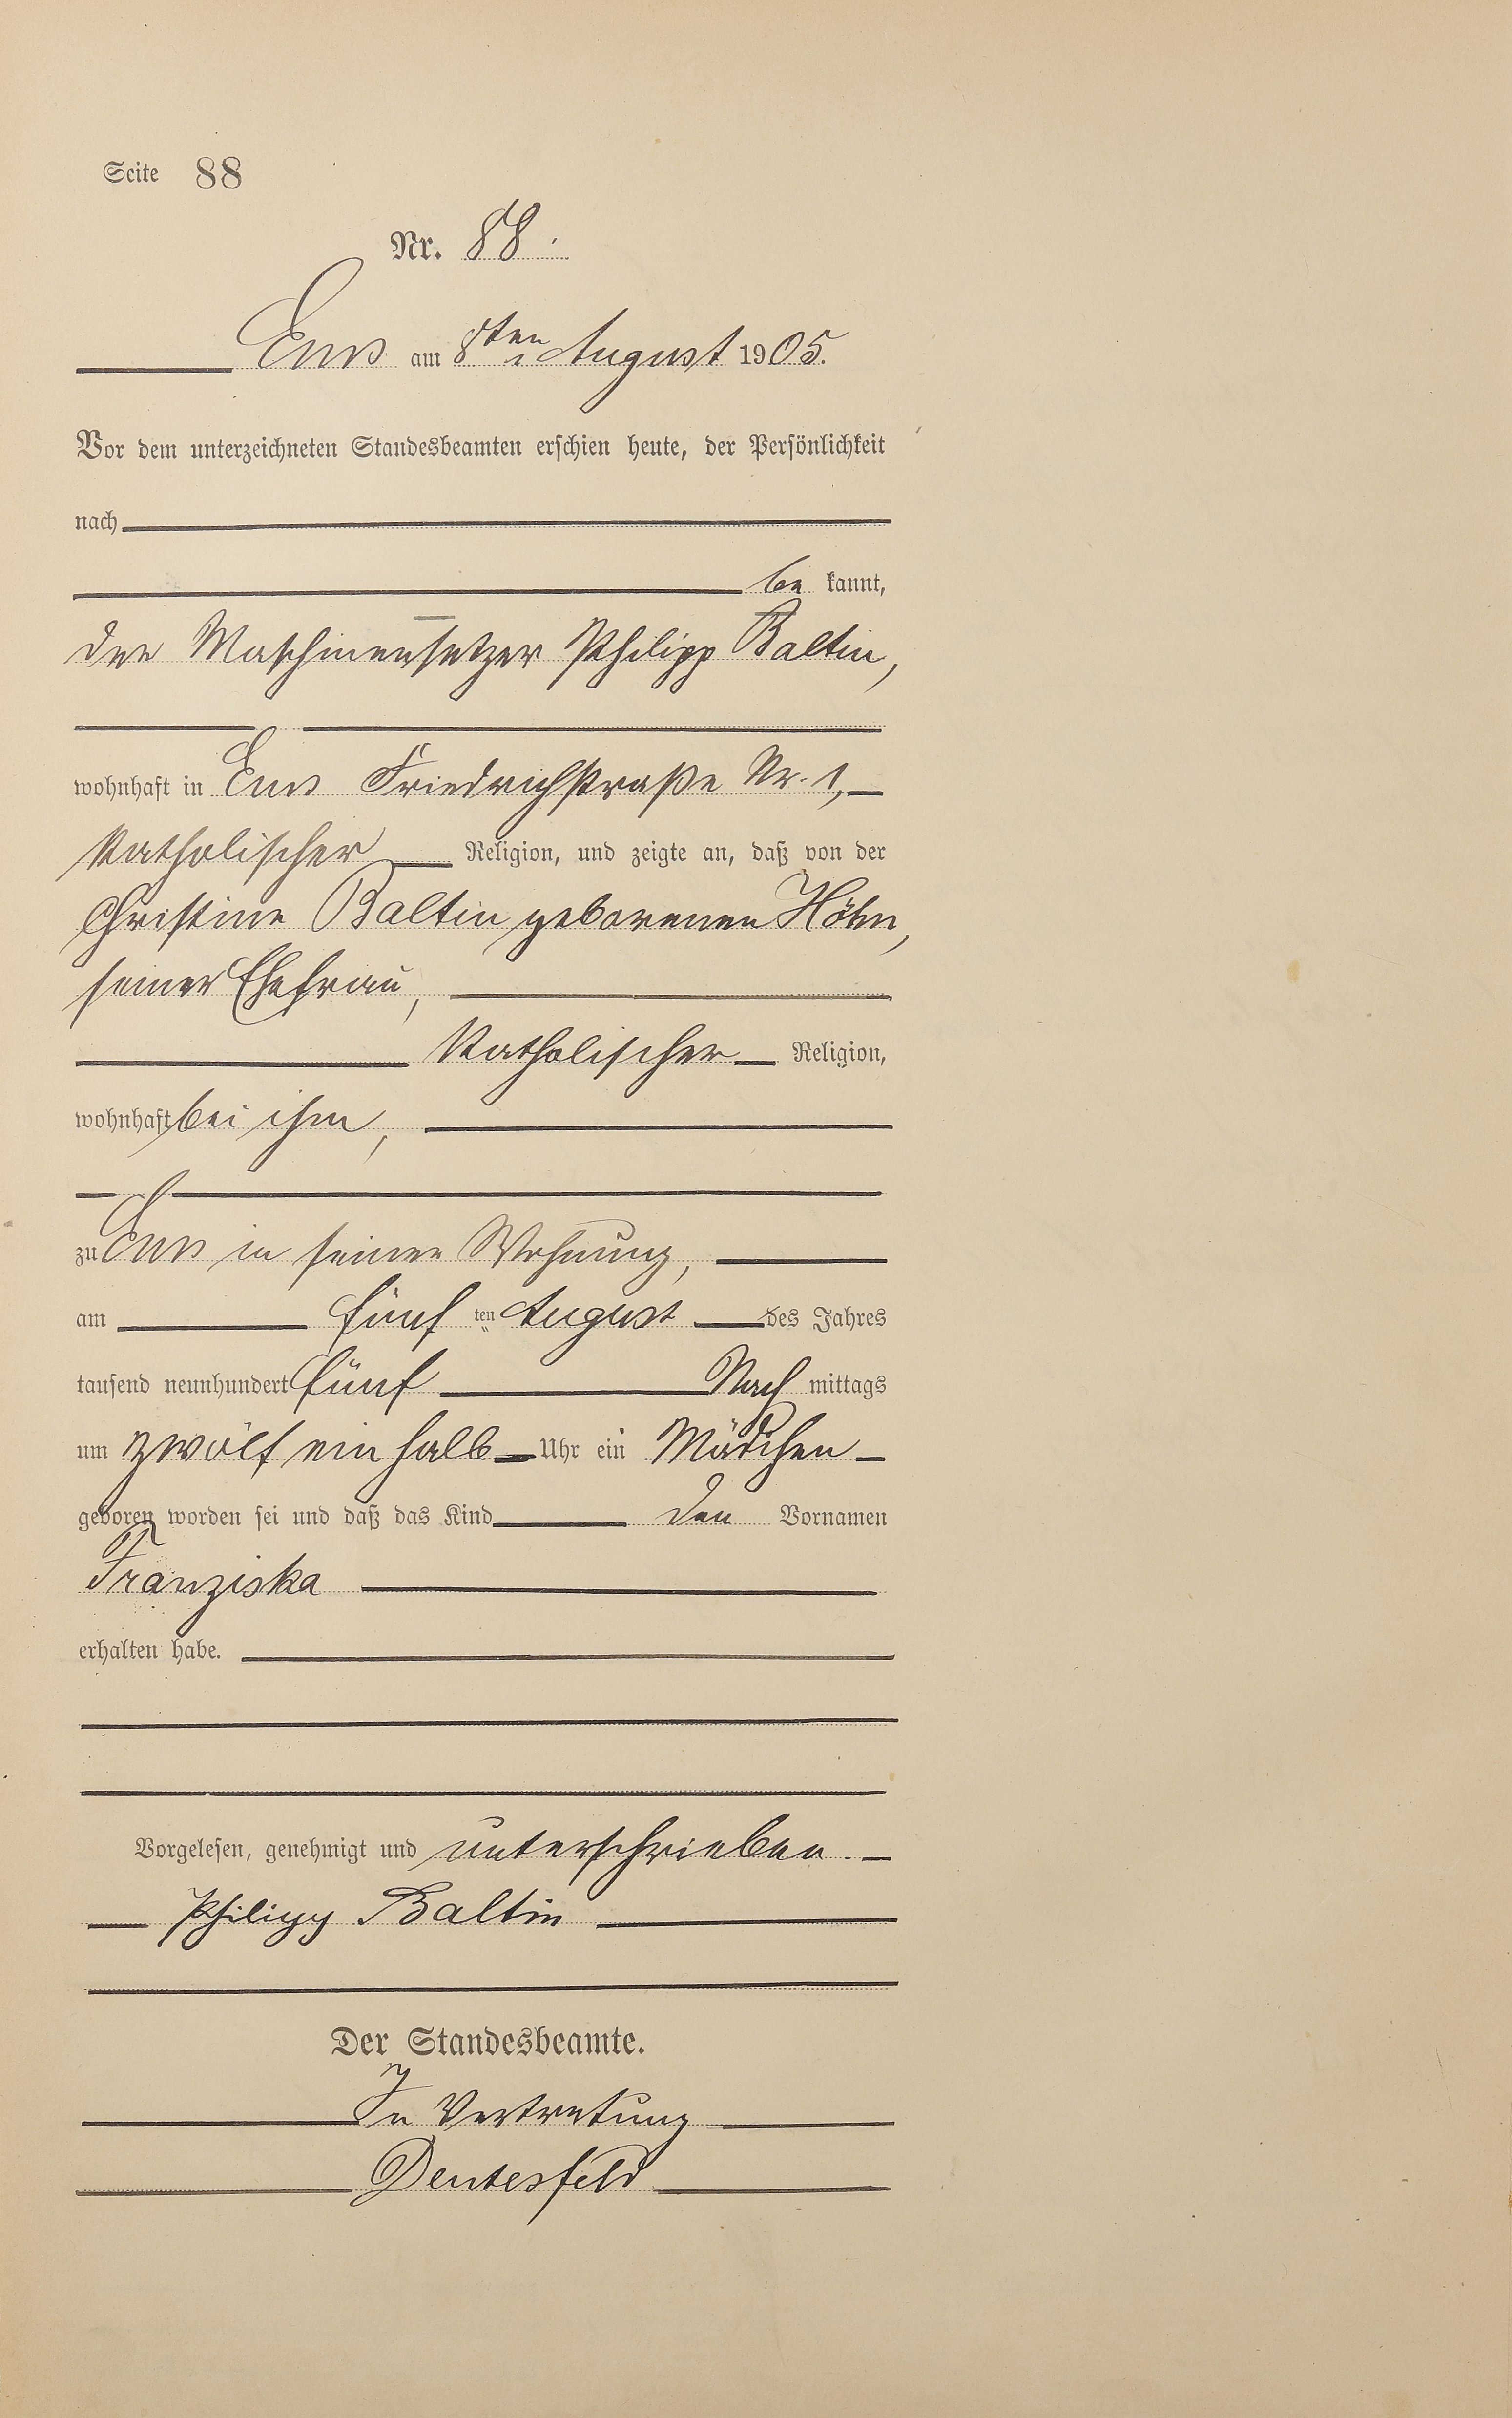 Seite 88
Nr. 88.
Ems am 8ten August 1905.
Vor dem unterzeichneten Standesbeamten erschien heute, der Persönlichkeit
nach
be kannt,
der Maschinensetzer Philipp Baltin,
wohnhaft in Ems Friedrichstraße Nr. 1,
katholischer Religion, und zeigte an, daß von der
Christine Baltin geborenen Höhn,
seiner Ehefrau,
katholischer Religion,
wohnhaft bei ihm,
zu Ems in seiner Wohnung,
am fünf ten August des Jahres
tausend neunhundert fünf Nach mittags
um zwölf ein halb Uhr ein Mädchen
geboren worden sei und daß das Kind den Vornamen
Franziska
erhalten habe.
Vorgelesen, genehmigt und unterschrieben.
Philipp Baltin
Der Standesbeamte.
In Vertretung
Dentesfeld